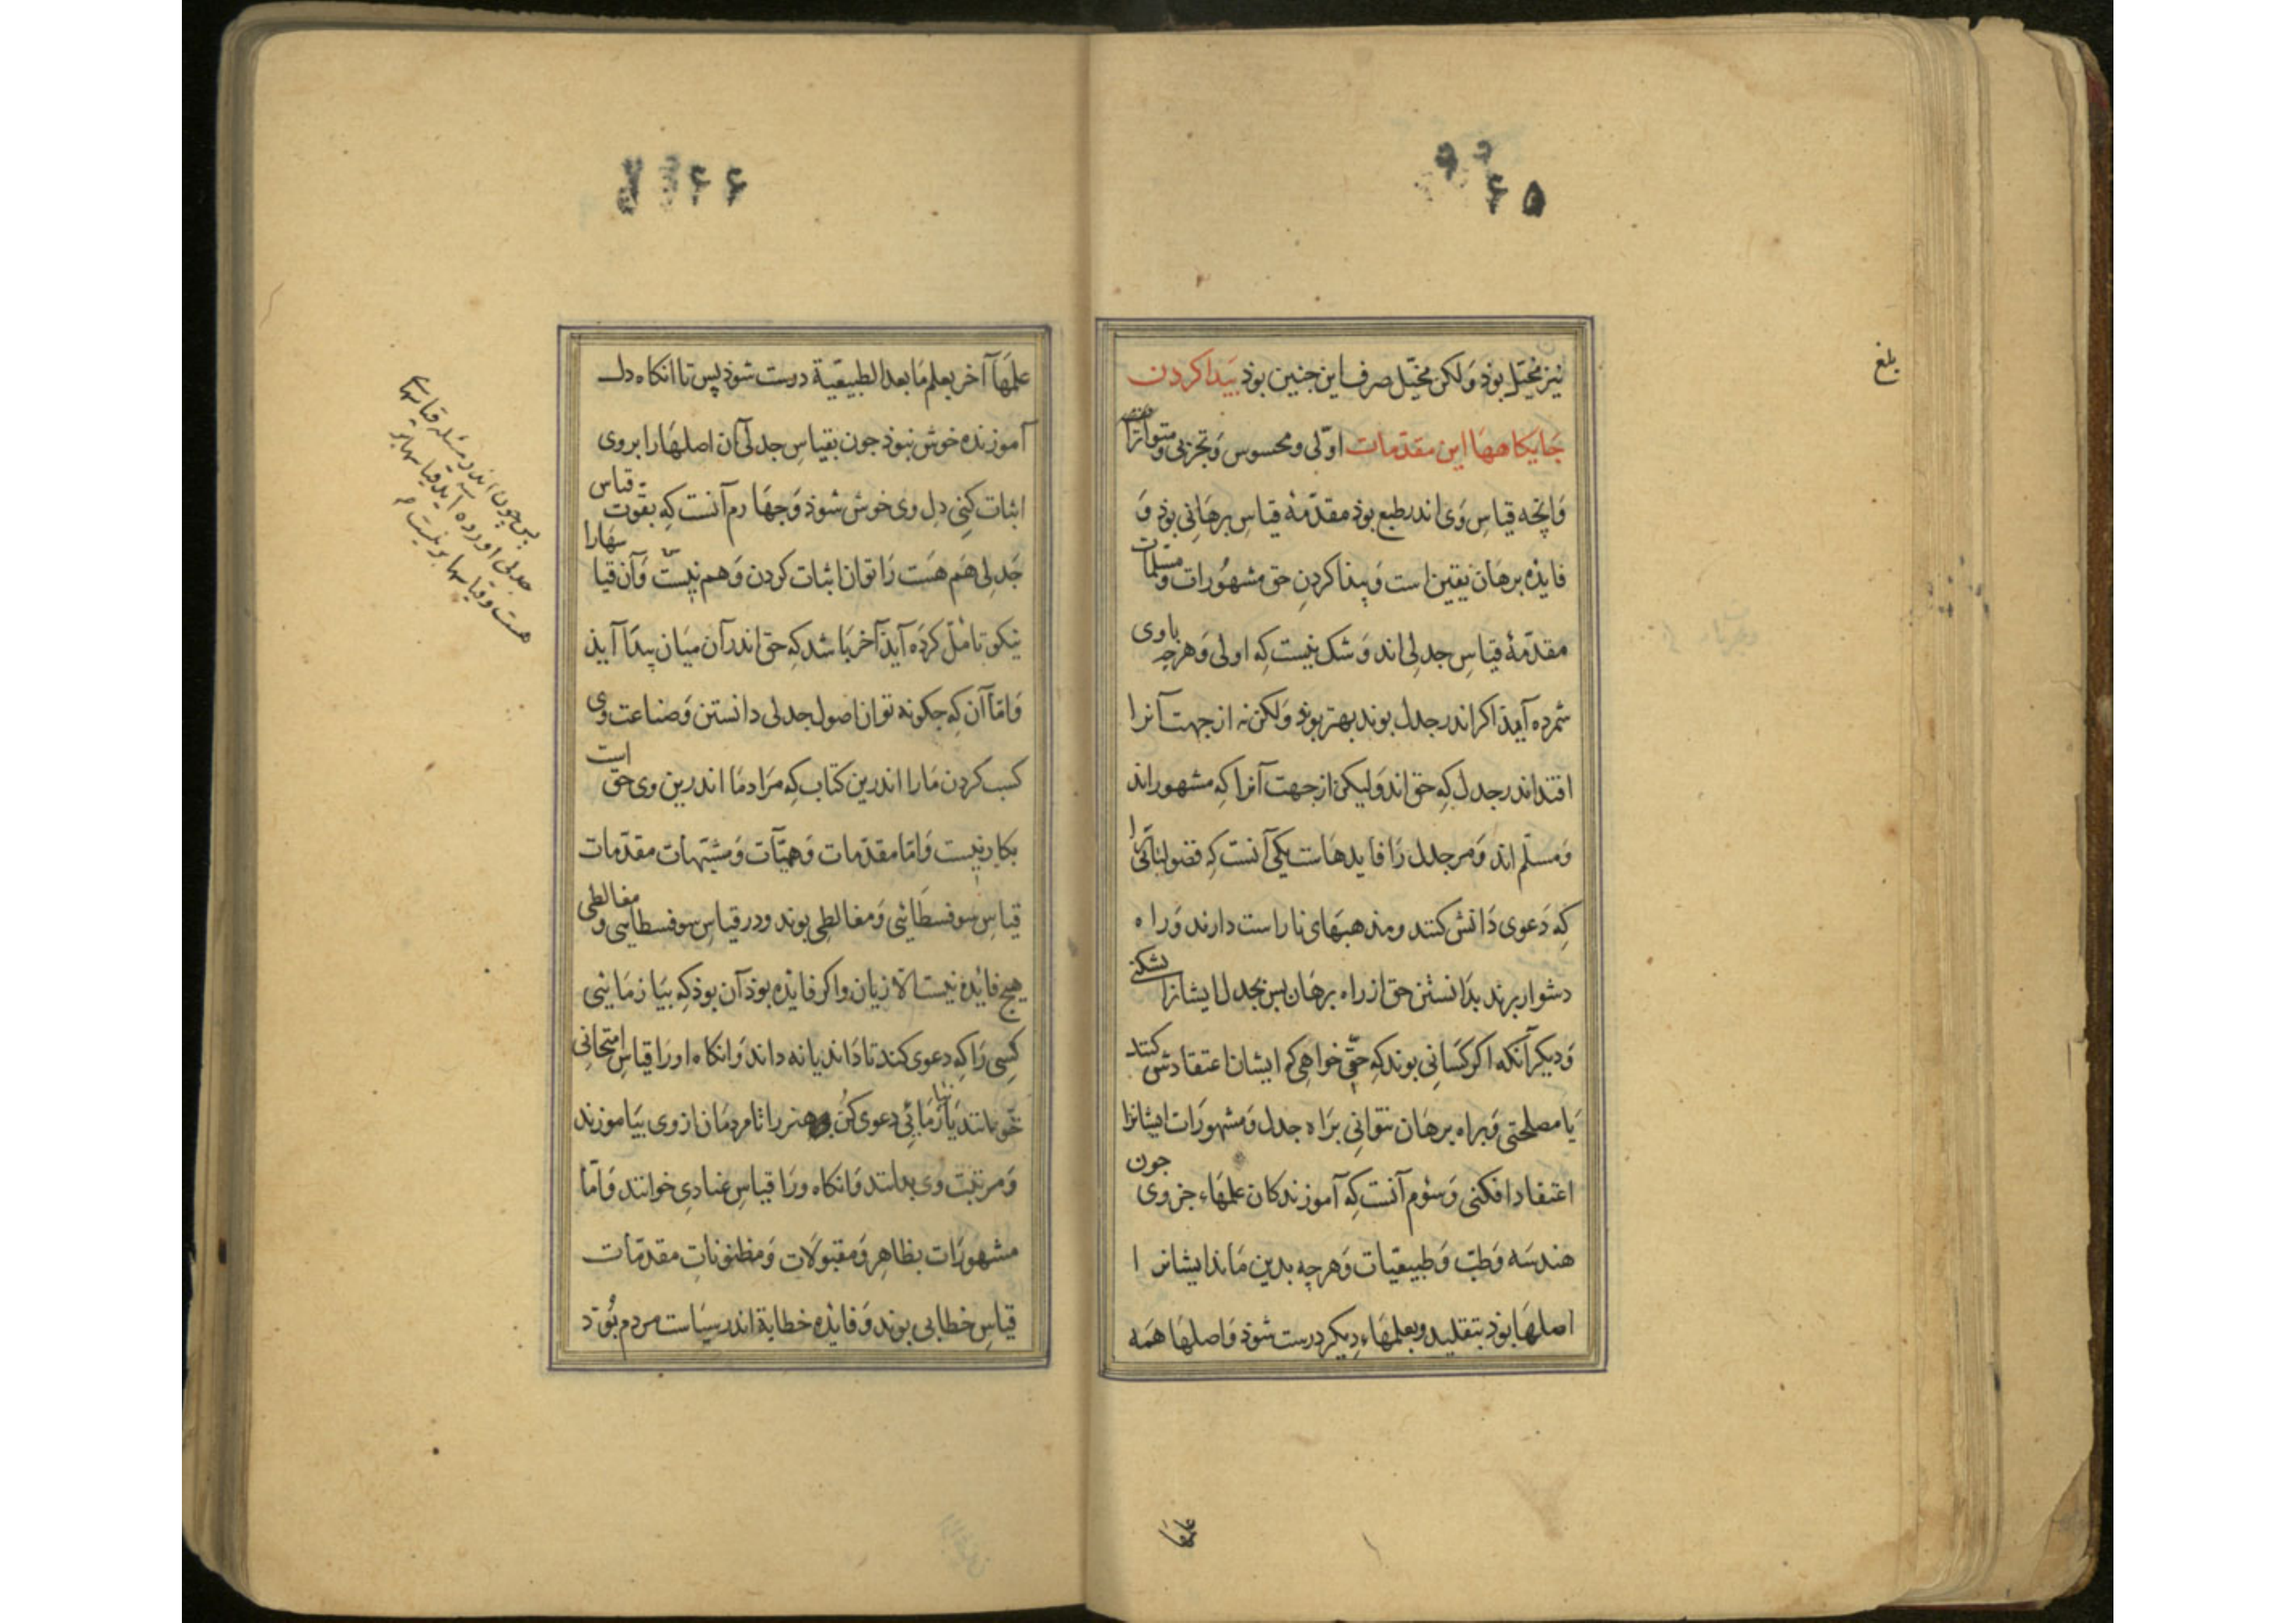 ۶۵
بلغ
نیز مخیّل بوذ وَلکن مخیّل صرف این جنین بوذ بیَدا کردن
جَایکاهها این مقدّمات اوّلی و محسوس وَتجربی و متواترات
وَانچه قیاسِ وَی اندر طبع بوذ مقدّمهٔ قیاسِ برهَانی بوذ وَ
فایذه برهَان یقین است وَ پیذا کردنِ حق مشهُورات و مسلمات
مقدّمهٔ قیاسِ جدلی اند وَ شک نیست کِه اولی وَ هرچه باوی
شمرده آیذ اکر اندر جدل بوند بهتر بوذ وَلکن نه از جهت آنرا
افتد اندر جدل کِه حق اند وَلیکن از جهت آنرا کِه مشهور اند
وَ مسلّم اند وَ مر جدل رَا فایدهَاست یکی آنست کِه فضولیانی را
کِه دَعوی دَانش کنند و مذهبهَای ناراست دارند وَ راه
دشوار برند بدَانستن حق از راه برهَان بس بجدل ایشانرا بشکنی
وَ دیکر آنکه اکر کسَانی بوند کِه حقّی خواهی کِه ایشان اعتقادش کنند
یَا مصلحتی وَ براه برهَان نتوانی برَاه جدل وَ مشهورَات ایشانرا
اعتقاد افکنی وَ سئوم آنست کِه آموزندکان علمهَاء جزوی جون
هندسَه وَ طبّ وَ طبیعیّات وَ هرچه بدین مَاند ایشانرا
اصلهَا بوذ بتقلید و بعلمهَاء دیکر درست شوذ وَ اصلهَا همَه
علمها
۶۶
علمهَآ آخر بعلم مَا بعد الطبیعیّة درست شوذ پس تا انکاه دل
آموزنده خوش نبوذ جون بقیاسِ جدلی آن اصلهَا را بروی
اثبات کنی دِل وی خوش شوذ وَ جهَارم آنست کِه بقوت قیاس
جَدلِی هَم هَست رَا توان اثبات کردن وَ هم نیست وَ آن قیاسهَا را
نیکو تامّل کردَه آیذ آخر بَاشد کِه حق اندر آن میَان پیدَا آیذ
وَ امّا آن کِه جکونه توان اصول جدلی دانستن وَ صناعت وی
کسب کردن مَارا اندرین کتاب کِه مرَاد مَا اندرین وی حق است
بکار نیست وَ امّا مقدّمات وَهمیّات وَ مشبّهات مقدّمات
قیاسِ سوفسطَائی وَ مغالطی بوند و در قیاسِ سوفسطایی و مغالطی
هیج فایٔذه نیست الّا زیان و اکر فایذه بوذ آن بوذ کِه بیَازمَایٔی
کسِی رَا کِه دعوی کند تا دَاند یا نه داند وَ انکاه او رَا قیاس امتحانی
خوانند یا بازمَائی دعوی کُن و هنر را تا مردمَان از وی بیَاموزند
وَ مرتبَت وی بدانند وَ انکاه ورَا قیاسِ عنادِی خوانند وَ امّا
مشهورَات بظاهِر وَ مقبولَات وَ مظنونات مقدّمات
قیاسِ خطابی بوند وَ فایٔذه خطابة اندر سیَاست مردم بُوَذ
بس جون اندر مسله قیاسهَا
جدلی اورده آید قیاسها بر
هست و قیاسها بر نیست م